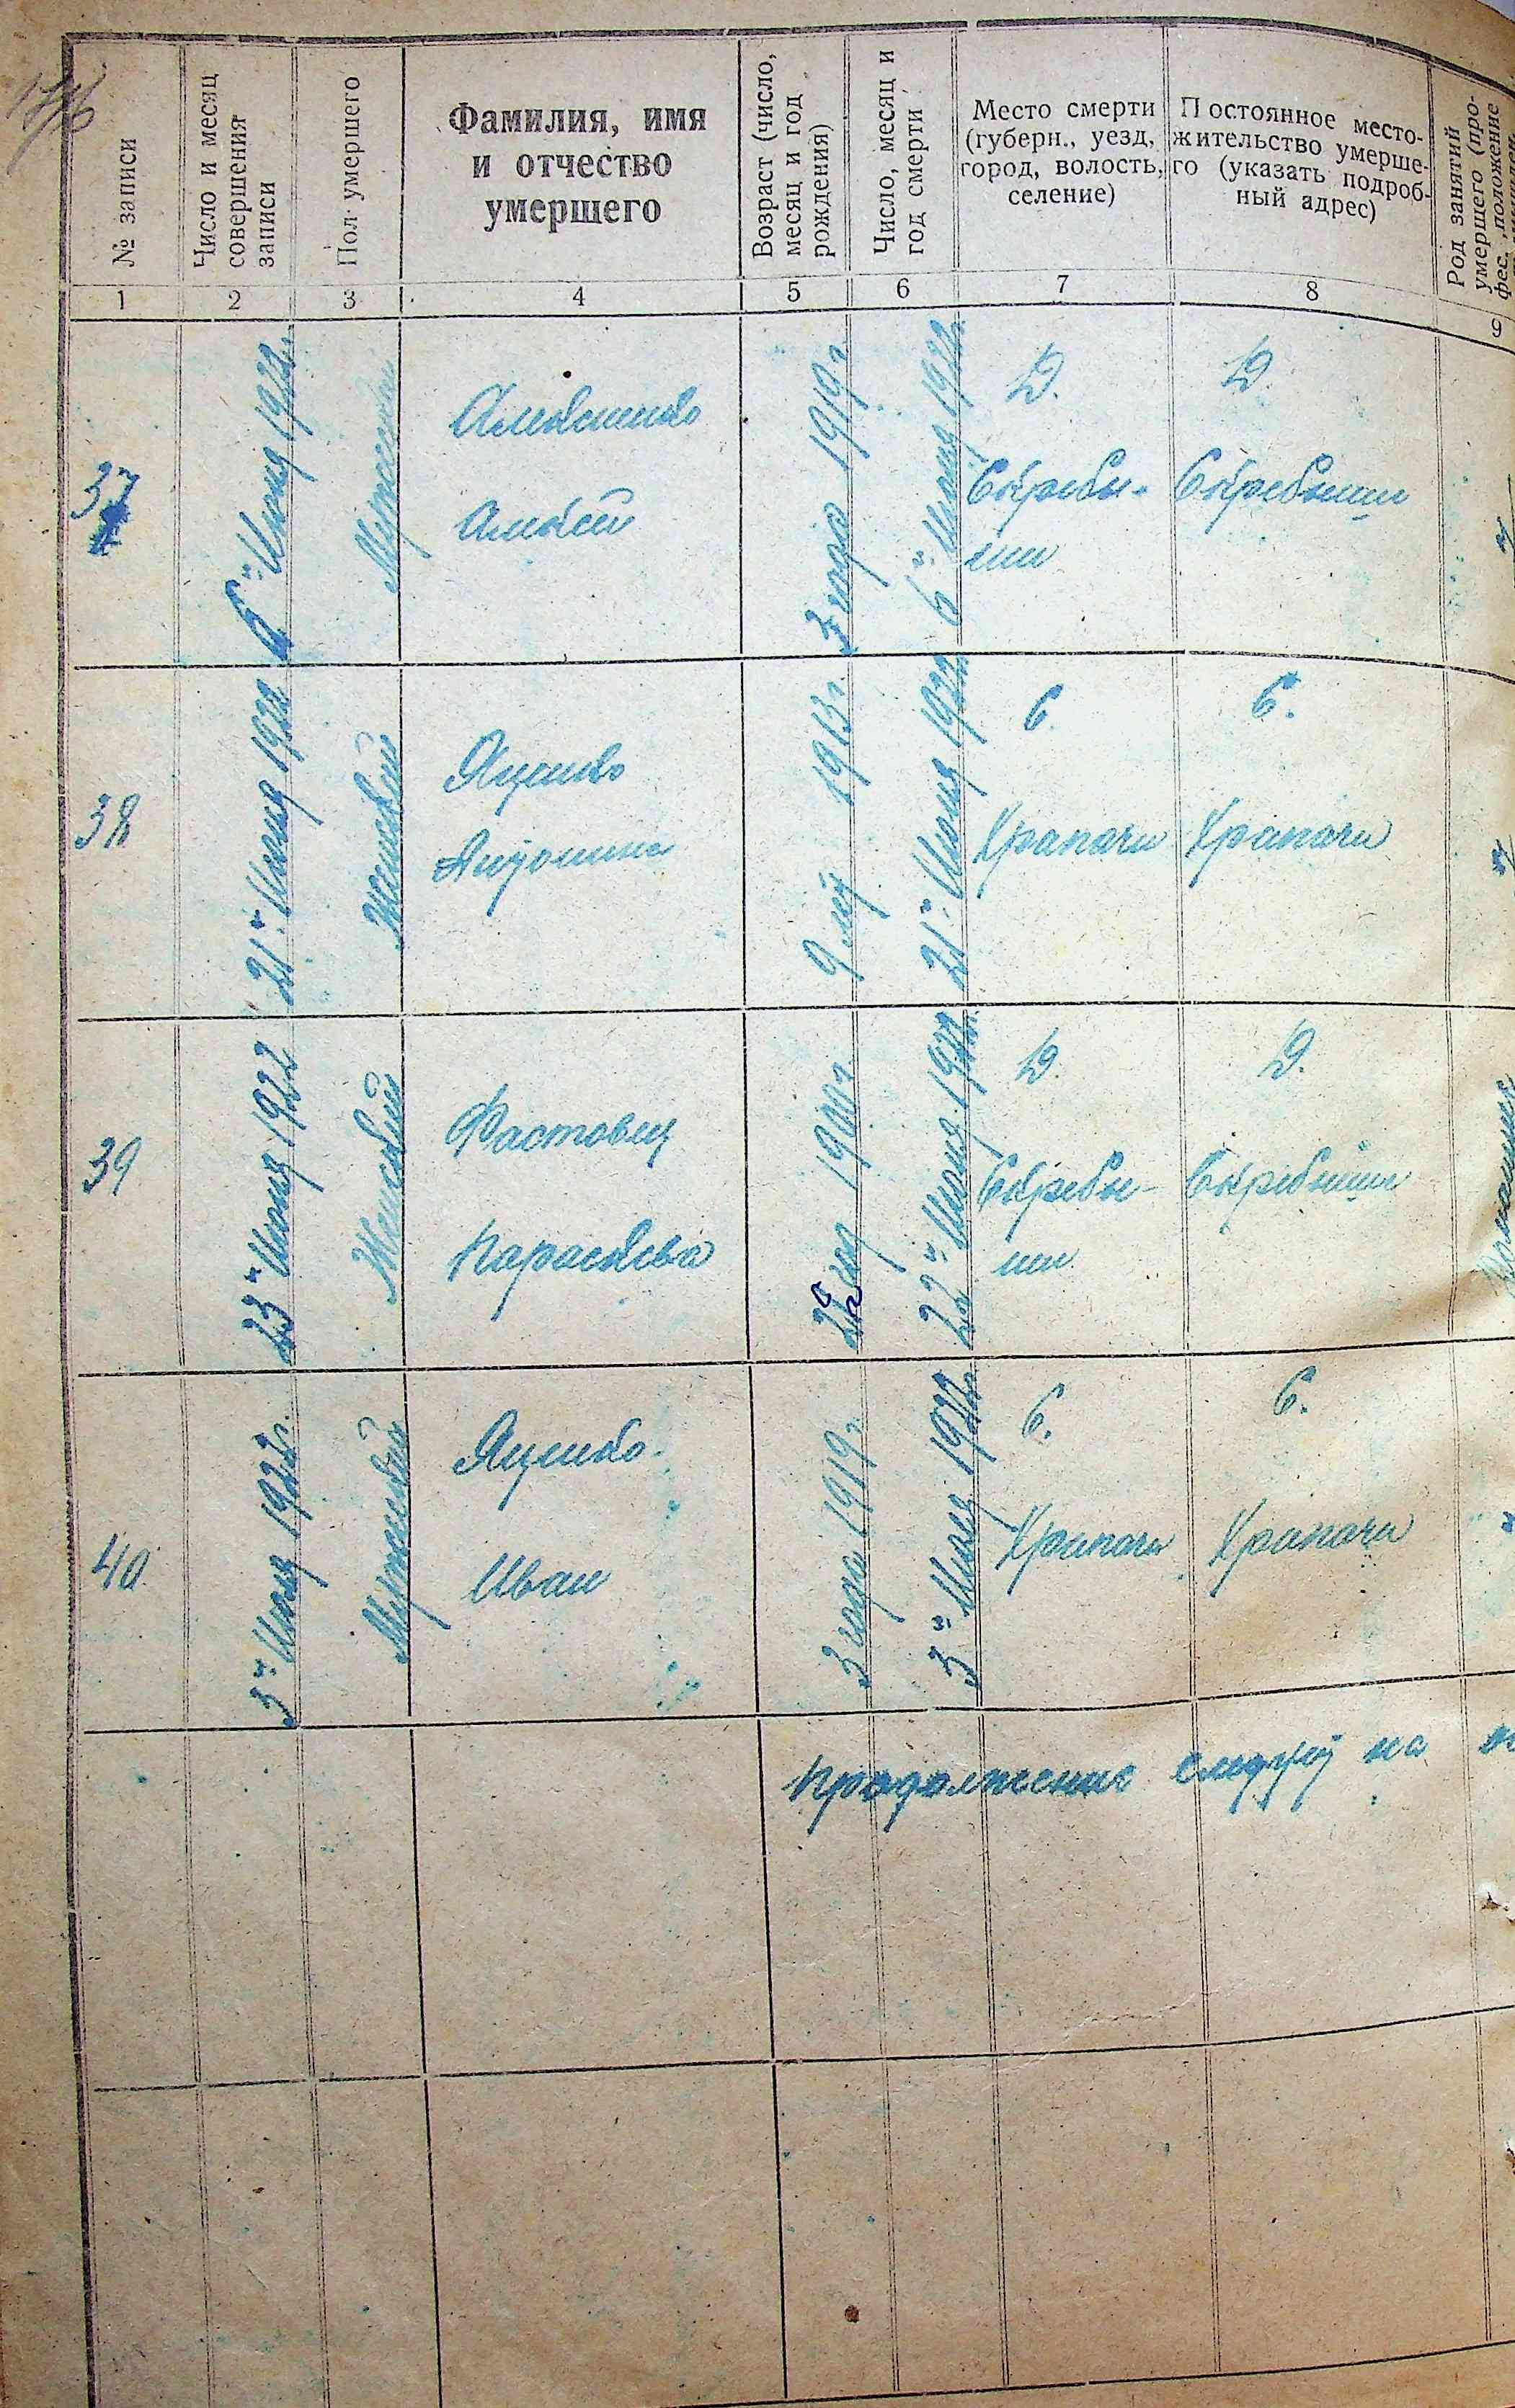 № записи
Число и месяц
совершения
записи
Пол умершего
Фамилия, имя
и отчество
умершего
Возраст (число,
месяц и год
рождения)
Число, месяц и
год смерти
Место смерти
(губерн., уезд,
город, волость,
селение)
Постоянное место-
жительство умерше-
го (указать подроб-
ный адрес)
Род занятий
умершего (про-
фес., положение
1 2 3 4 5 6 7 8 9
37
6-го Июня 1922 г.
Мужеский
Алексей
3 года 1919 г.
6-го Июня 1922 г.
Д.
Д.
38
21-го Июня 1922
Женский
Яценко
Антонина
9 лет 1913 г.
21-го Июня 1922
С.
Храпачи
С.
Храпачи
39
23-го Июня 1922
Женский
Фастовец
Параскева
1900 г.
22-го Июня 1922 г.
Д.
Д.
40
3-го Июля 1922 г.
Мужеский
Яценко
Иван
3 года 1919 г.
3-го Июля 1922 г.
С.
Храпачи
С.
Храпачи
продолжение следует на